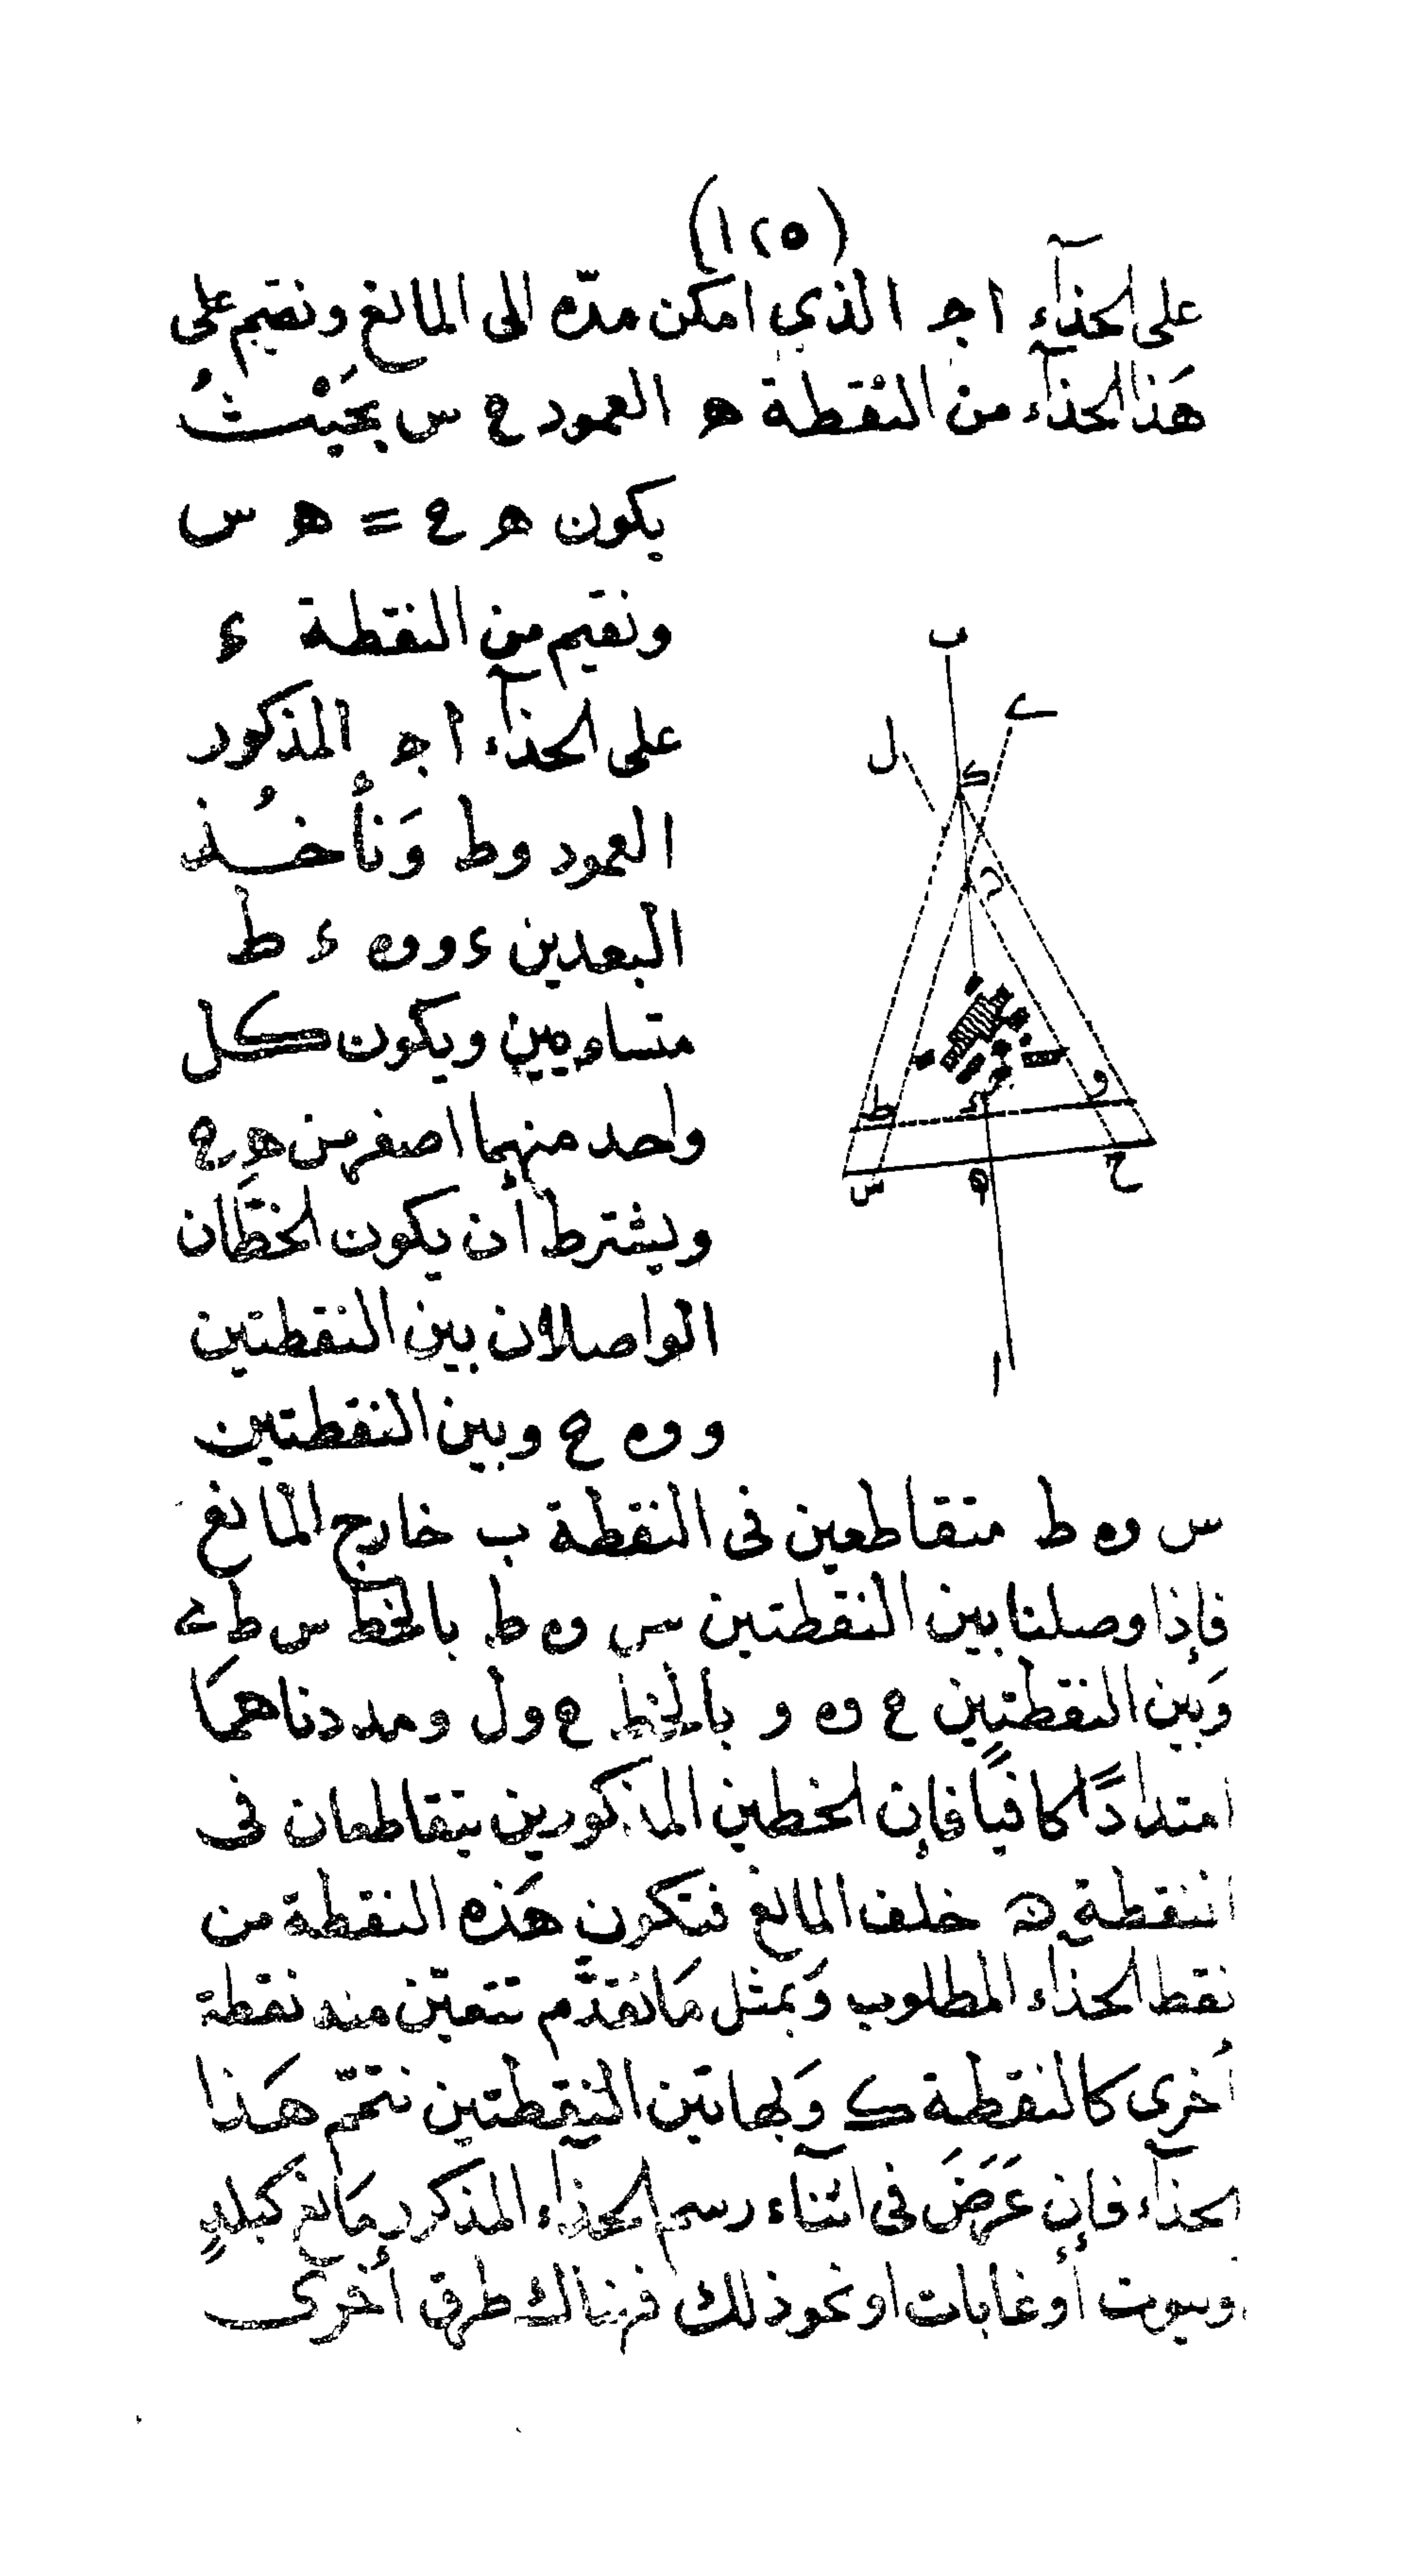 (١٢٥)
على الحذآء ا ج الذي امكن مدّه الى المانع ونقيم على
هَذا الحذآء من النقطة ه العمود ح س بحَيْثُ
يكون ه ح = ه س
ونقيم من النقطة ء
على الحذآء ا ج المذكور
العمود و ط وَنأخُذ
البعدين ء و و ه ء ط
متساويين ويكون كل
واحد منهما اصغر من ه ح
ويشترط أن يكون الخطَّان
الواصلان بين النقطتين
و و ه ح وبين النقطتين
س و ه ط متقاطعين فى النقطة ب خارج المانع
فإذا وصلنا بين النقطتين س و ه ط بالخط س ط ے
وَبين النقطتين ح و ه و بالخط ح و ل ومددناهمَا
امتدادًا كافيًا فإن الخطين المذكورين يتقاطعان فى
النقطة ن خلف المانع فتكون هَذه النقطة من
نقط الحذآء المطلوب وَبمثل مَا تقدَّم تتعيّن منه نقطة
أخرى كالنقطة ك وَبهاتين النقطتين نتمّم هَذا
الحذآء فإن عَرَضَ فى اثنآء رسم الحذآء المذكور مَانع كبلدٍ
وبيوت أو غابات او نحو ذلك فهناك طرق أخرى
ب
ے
ل
ك
ن
و
ط
ء
ح
ه
س
ا